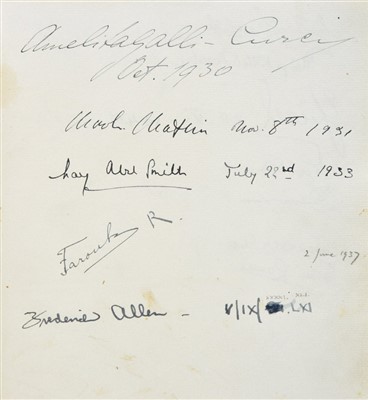 Amelita Galli-Curci
Oct. 1930
Nov. 8th 1931
May Abel Smith July 22nd 1933
Farouk R.
2 June 1937
Frederick Allen - V/IX/ LXI